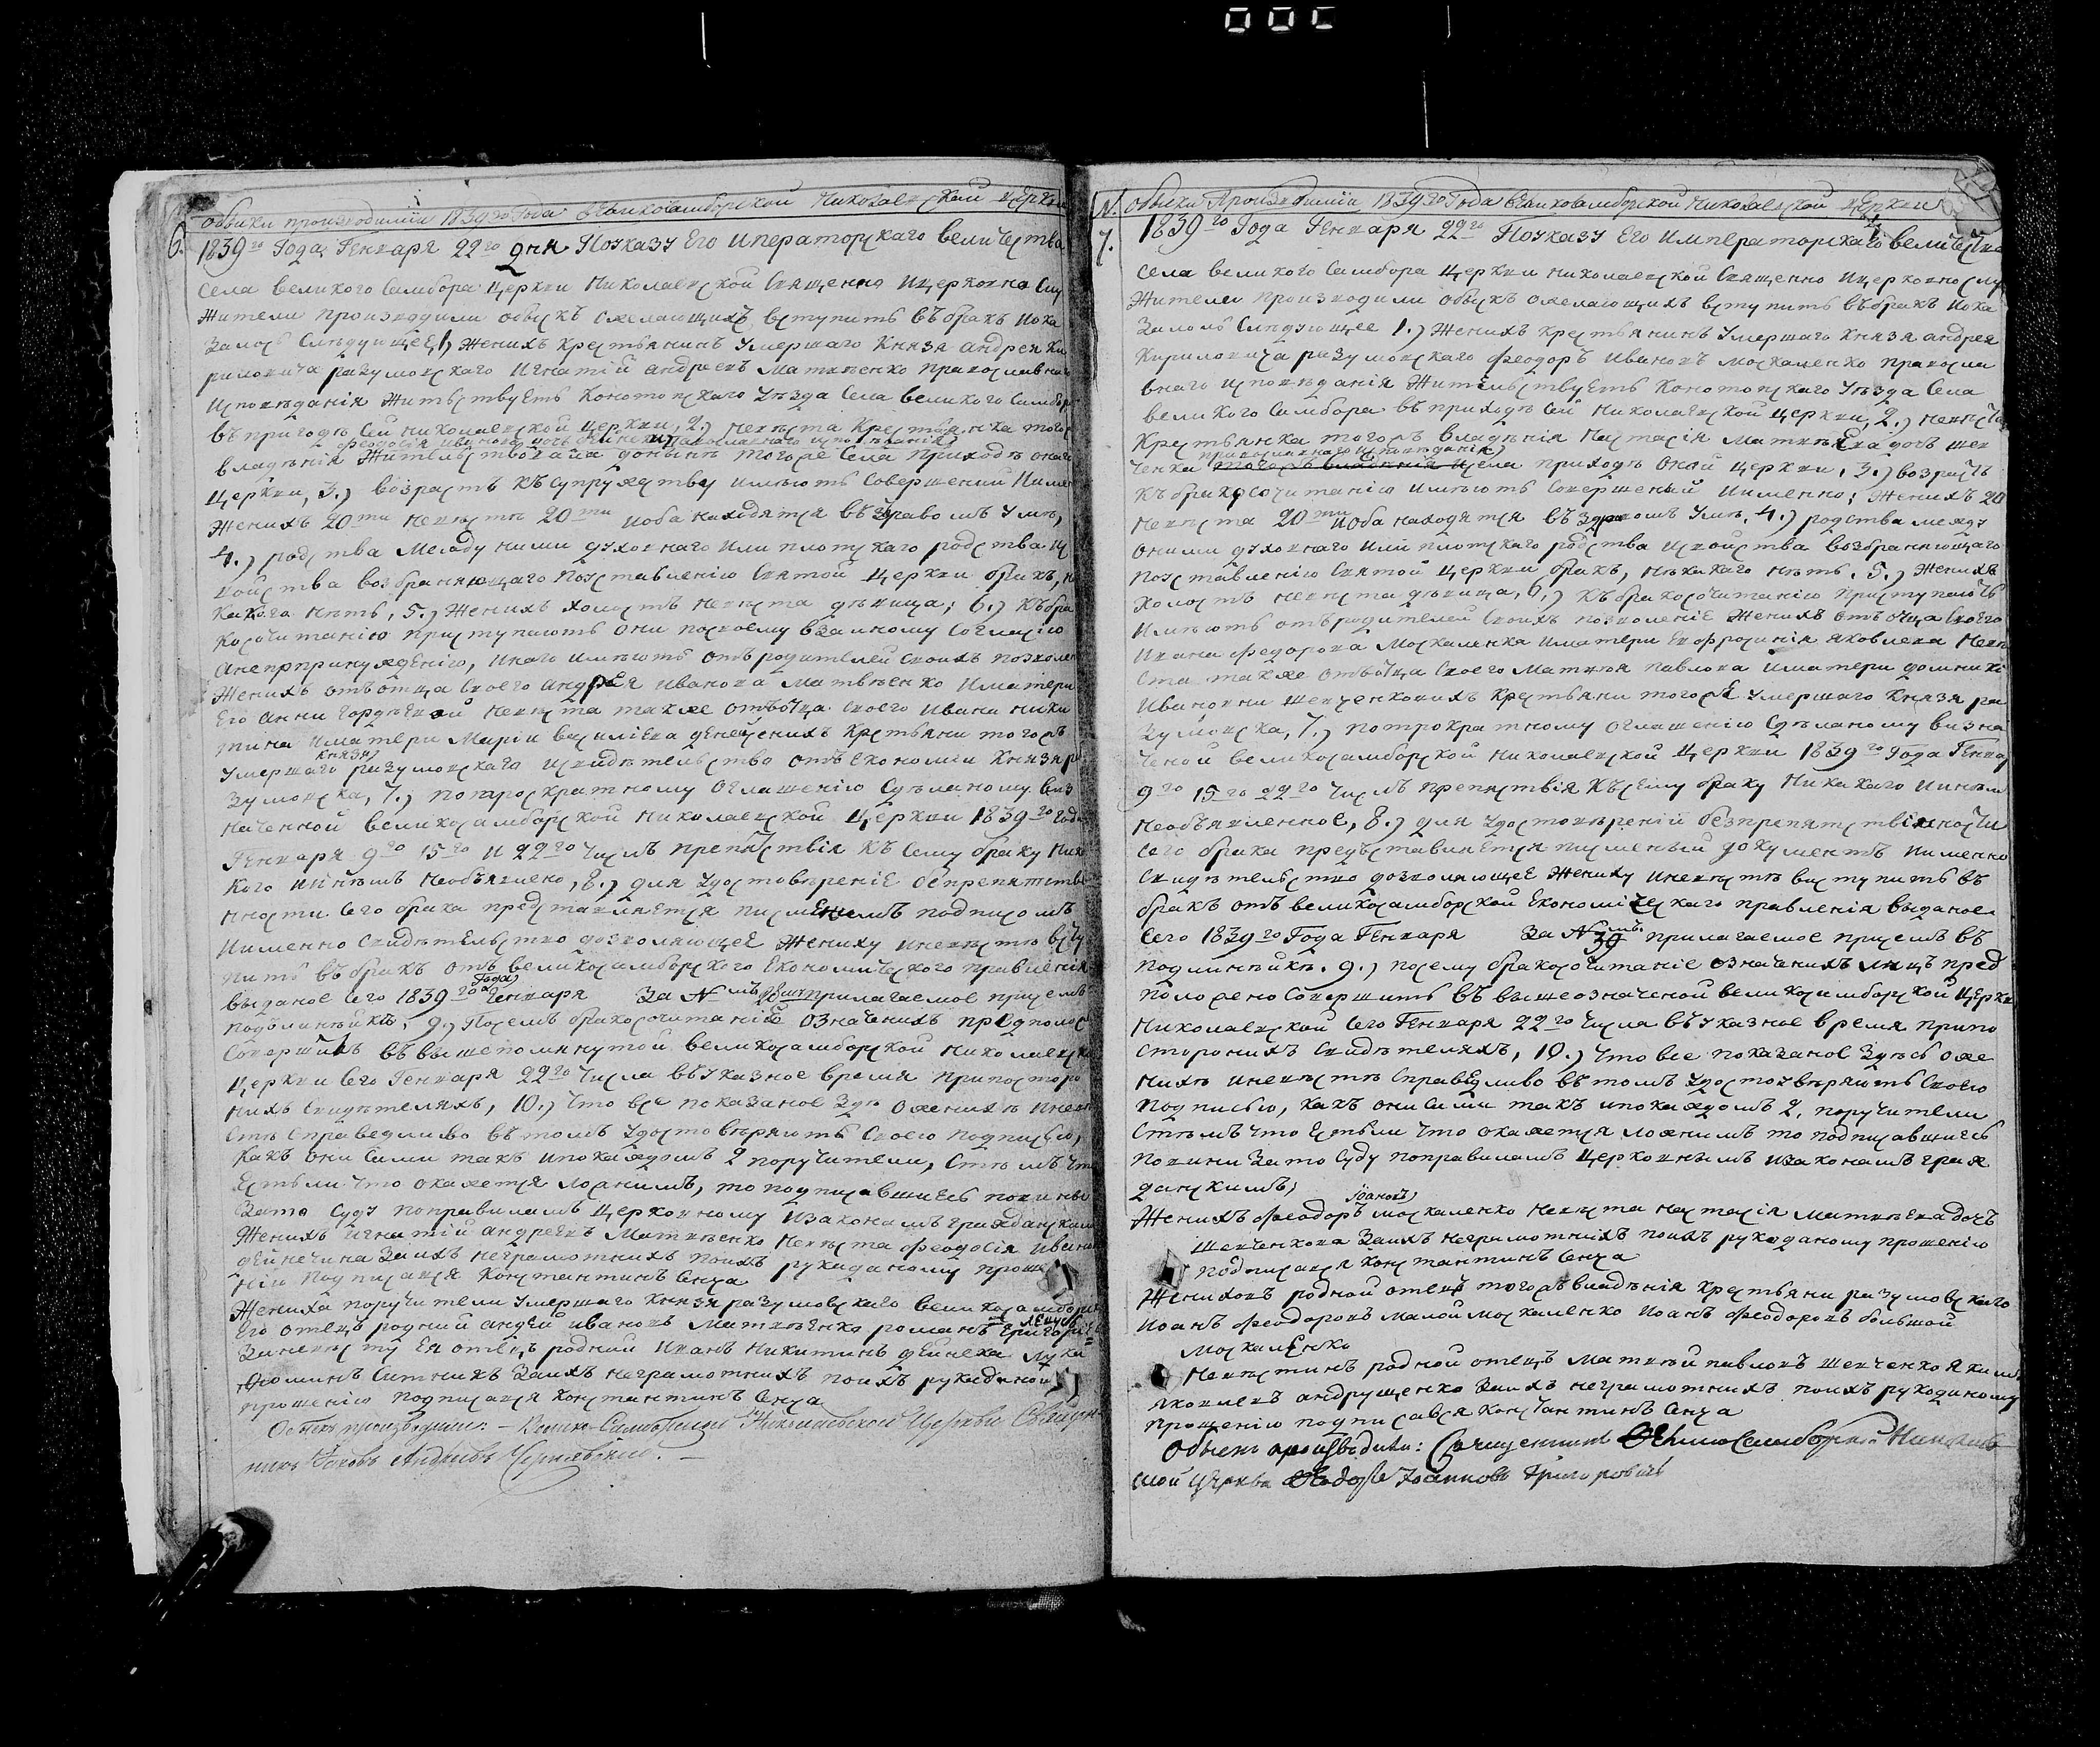 обыски произходимии 1839го Года великосамборской Николаевской церкви
6.
1839го Года Генваря 22го дня Поуказу Его императорскаго величества
села великого самбора церкви николаевской священно ицерковно слу
жители производили обыск желающихъ вступить въбракъ ипока
залось следующее, 1) женихъ крестьянинъ умершаго князя андрея ки
риловича разумовскаго игнатій андреевъ матвѣенко православнаго
исповѣданія жительствуетъ конотопскаго уѣзда села великого самбора
въприходѣ сей николаевской церкви, 2.) невѣста крестьянка того
феодосія иванова дочь православнаго исповѣданія
владѣнія жительствовала донынѣ тогоже села приходѣ оной
церкви, 3.) возрастъ къ супружеству имѣютъ совершений име
женихъ 20ти невѣста 20ти иоба находятся въздравомъ умѣ,
4.) родства между ними духовнаго или плотскаго родства ис
войства возбраняющаго поуставленію святой церкви бракъ, ни
какого нетъ, 5.) женихъ холостъ невѣста дѣвица, 6.) къбра
косочитанію приступаютъ они посвоему взаимному согласію
анепринуждению, инато имѣютъ отъ родителей своихъ позволен
женихъ отъотца своего андрея иванова матвѣенко иматери
его анни гордѣевой невѣста также отъотца своего ивана ники
тина иматери маріи василіева денежнихъ крестьяни тогожъ
князя
умершаго разумовскаго исвидѣтельство отъ економіи князя ра
зумовска, 7.) потроекратному оглашенію сдѣланому въоз
наченной великосамборской николаевской церкви 1839го года
Генваря 9го 15го и 22го числъ препятствія къ сему браку ника
кого никѣмъ необъявлено, 8.) для удостовѣреніе безпрепятстве
нности сего брака представляется писменемъ подписомъ
иименно свидѣтельство дозволяющее жениху иневѣстѣ всту
пить въ бракъ отъ великосамборского економического правленія
года
выданое сего 1839го Генваря за №мъ прилагаемое присемъ
подлинникѣ. 9.) Посемъ бракосочитаніе означенихъ предположе
совершить въ вышепомянутой великосамборской николаевской
церкви сего Генваря 22го числа въуказное время припосторо
нихъ свидѣтеляхъ, 10.) что все показаное здѣ ожених иневѣ
стѣ справедливо вътомъ удостовѣряютъ своею подписью,
какъ они сами такъ ипокаждомъ 2 поручители, стѣмъ что
естьли что окажется ложнимъ, то подписавшиесь повинни
зато суду поправиламъ церковному изаконамъ гражданским
женихъ игнатій андреевъ матвѣенко невѣста феодосія ивано
дейнечина заихъ неграмотнихъ поихъ рукаданому проше
нію подписался константинъ сенча
жениха поручители умершаго князя разумовскаго великосамборск
его отецъ родний андрей ивановъ матвѣенко романъ григорие
заневѣсту ея отецъ родний иванъ никитинъ дейнека лука
фоминъ ситникъ заихъ неграмотнихъ поихъ рукаданому
прошенію подписался константинъ сенча
Обыскъ производили: Велико-Самборской Николаевской Церкви Священ-
никъ Іаковъ Андреевъ Чернявский.
№. обыски произходимии 1839го Года великосамборской николаевской церкви
7.
1839го Года Генваря 22го Поуказу Его императорскаго величества
села великого самбора церкви николаевской священно ицерковнослу
жители производили обыскъ ожелающихъ вступить въбракъ ипока
залось слѣдующее 1.) женихъ крестьянинъ умершаго князя андрея
кириловича разумовскаго феодоръ ивановъ москаленко правосла
внаго исповѣданія жительствуетъ конотопскаго уѣзда села
великого самбора въприходѣ сей николаевской церкви, 2.) невѣста
крестьянка тогожъ владѣнія настасія матвѣева дочь шев
православнаго исповѣданія
ченка тогожъ владѣнія исела приходѣ оной церкви, 3.) возрастъ
къбракосочитанію имѣютъ совершеный иименно: женихъ 20
невѣста 20ти иоба находятся въ здравомъ умѣ, 4.) родства между
оними духовнаго или плотскаго родства исвойства возбраняющаго
поуставленію святой церкви бракъ, нѣкакаго нѣтъ, 5.) женихъ
холостъ невѣста дѣвица, 6.) къбракосочитанію приступаютъ
имѣютъ отъродителей своихъ позволеніе женихъ отъотца своего
ивана федорова москаленка иматери ефросинія яковлева невѣ
ста также отъотца своего матвѣя павлова иматери домники
ивановни шевченковихъ крестьяни тогожъ умершаго князя ра
зумовска, 7.) потрократному оглашенію сдѣланому въозна
ченой великосамборской николаевской церкви 1839го года Генвар
9го 15го 22го числъ препятствія късему браку никакаго никѣм
необъявленное, 8.) для удостовѣрений безпрепятственности
сего брака представляется писменый документъ иименно
свидѣтельство дозволяющее жениху иневѣстѣ вступить въ
бракъ отъ великосамборской економическаго правленія выданое
сего 1839го года Генваря за №мъ 39 прилагаемое присемъ въ
подлинникѣ. 9.) посему бракосочитаніе означенихъ лицъ пред
положено совершить въ вышеозначеной великосамборской церкви
николаевской сего Генваря 22го числа въуказное время припо
сторонихъ свидѣтеляхъ, 10.) что все показаное здѣсь оже
нихѣ иневѣстѣ справедливо вътомъ удостоувѣряютъ своею
подписью, какъ они сами такъ ипокаждомъ 2. поручители
стѣмъ что естьли что окажется ложнимъ то подписавшиесь
повини зато суду поправиламъ церковнымъ изаконамъ граж
данскимъ,
Іоановъ
женихъ феодоръ москаленко невѣста настасія матвѣева дочь
шевченкова заихъ неграмотнихъ поихъ рукоданому прошенію
подписался константинъ сенча
женихов родной отецъ тогожъ владѣнія крестьяни разумовскаго
иоанъ феодоровъ малой москаленко иоанъ феодоровъ большой
москаленко
невѣстинъ родной отецъ матвѣй павловъ шевченко якимъ
яковлевъ андрущенко заихъ неграмотнихъ поихъ рукоданому
прошенію подписався константинъ сенча
Обыскъ производили: Священникъ Великосамборской Николаев
ской церкви Феодоръ Іоанновъ Григоровичъ